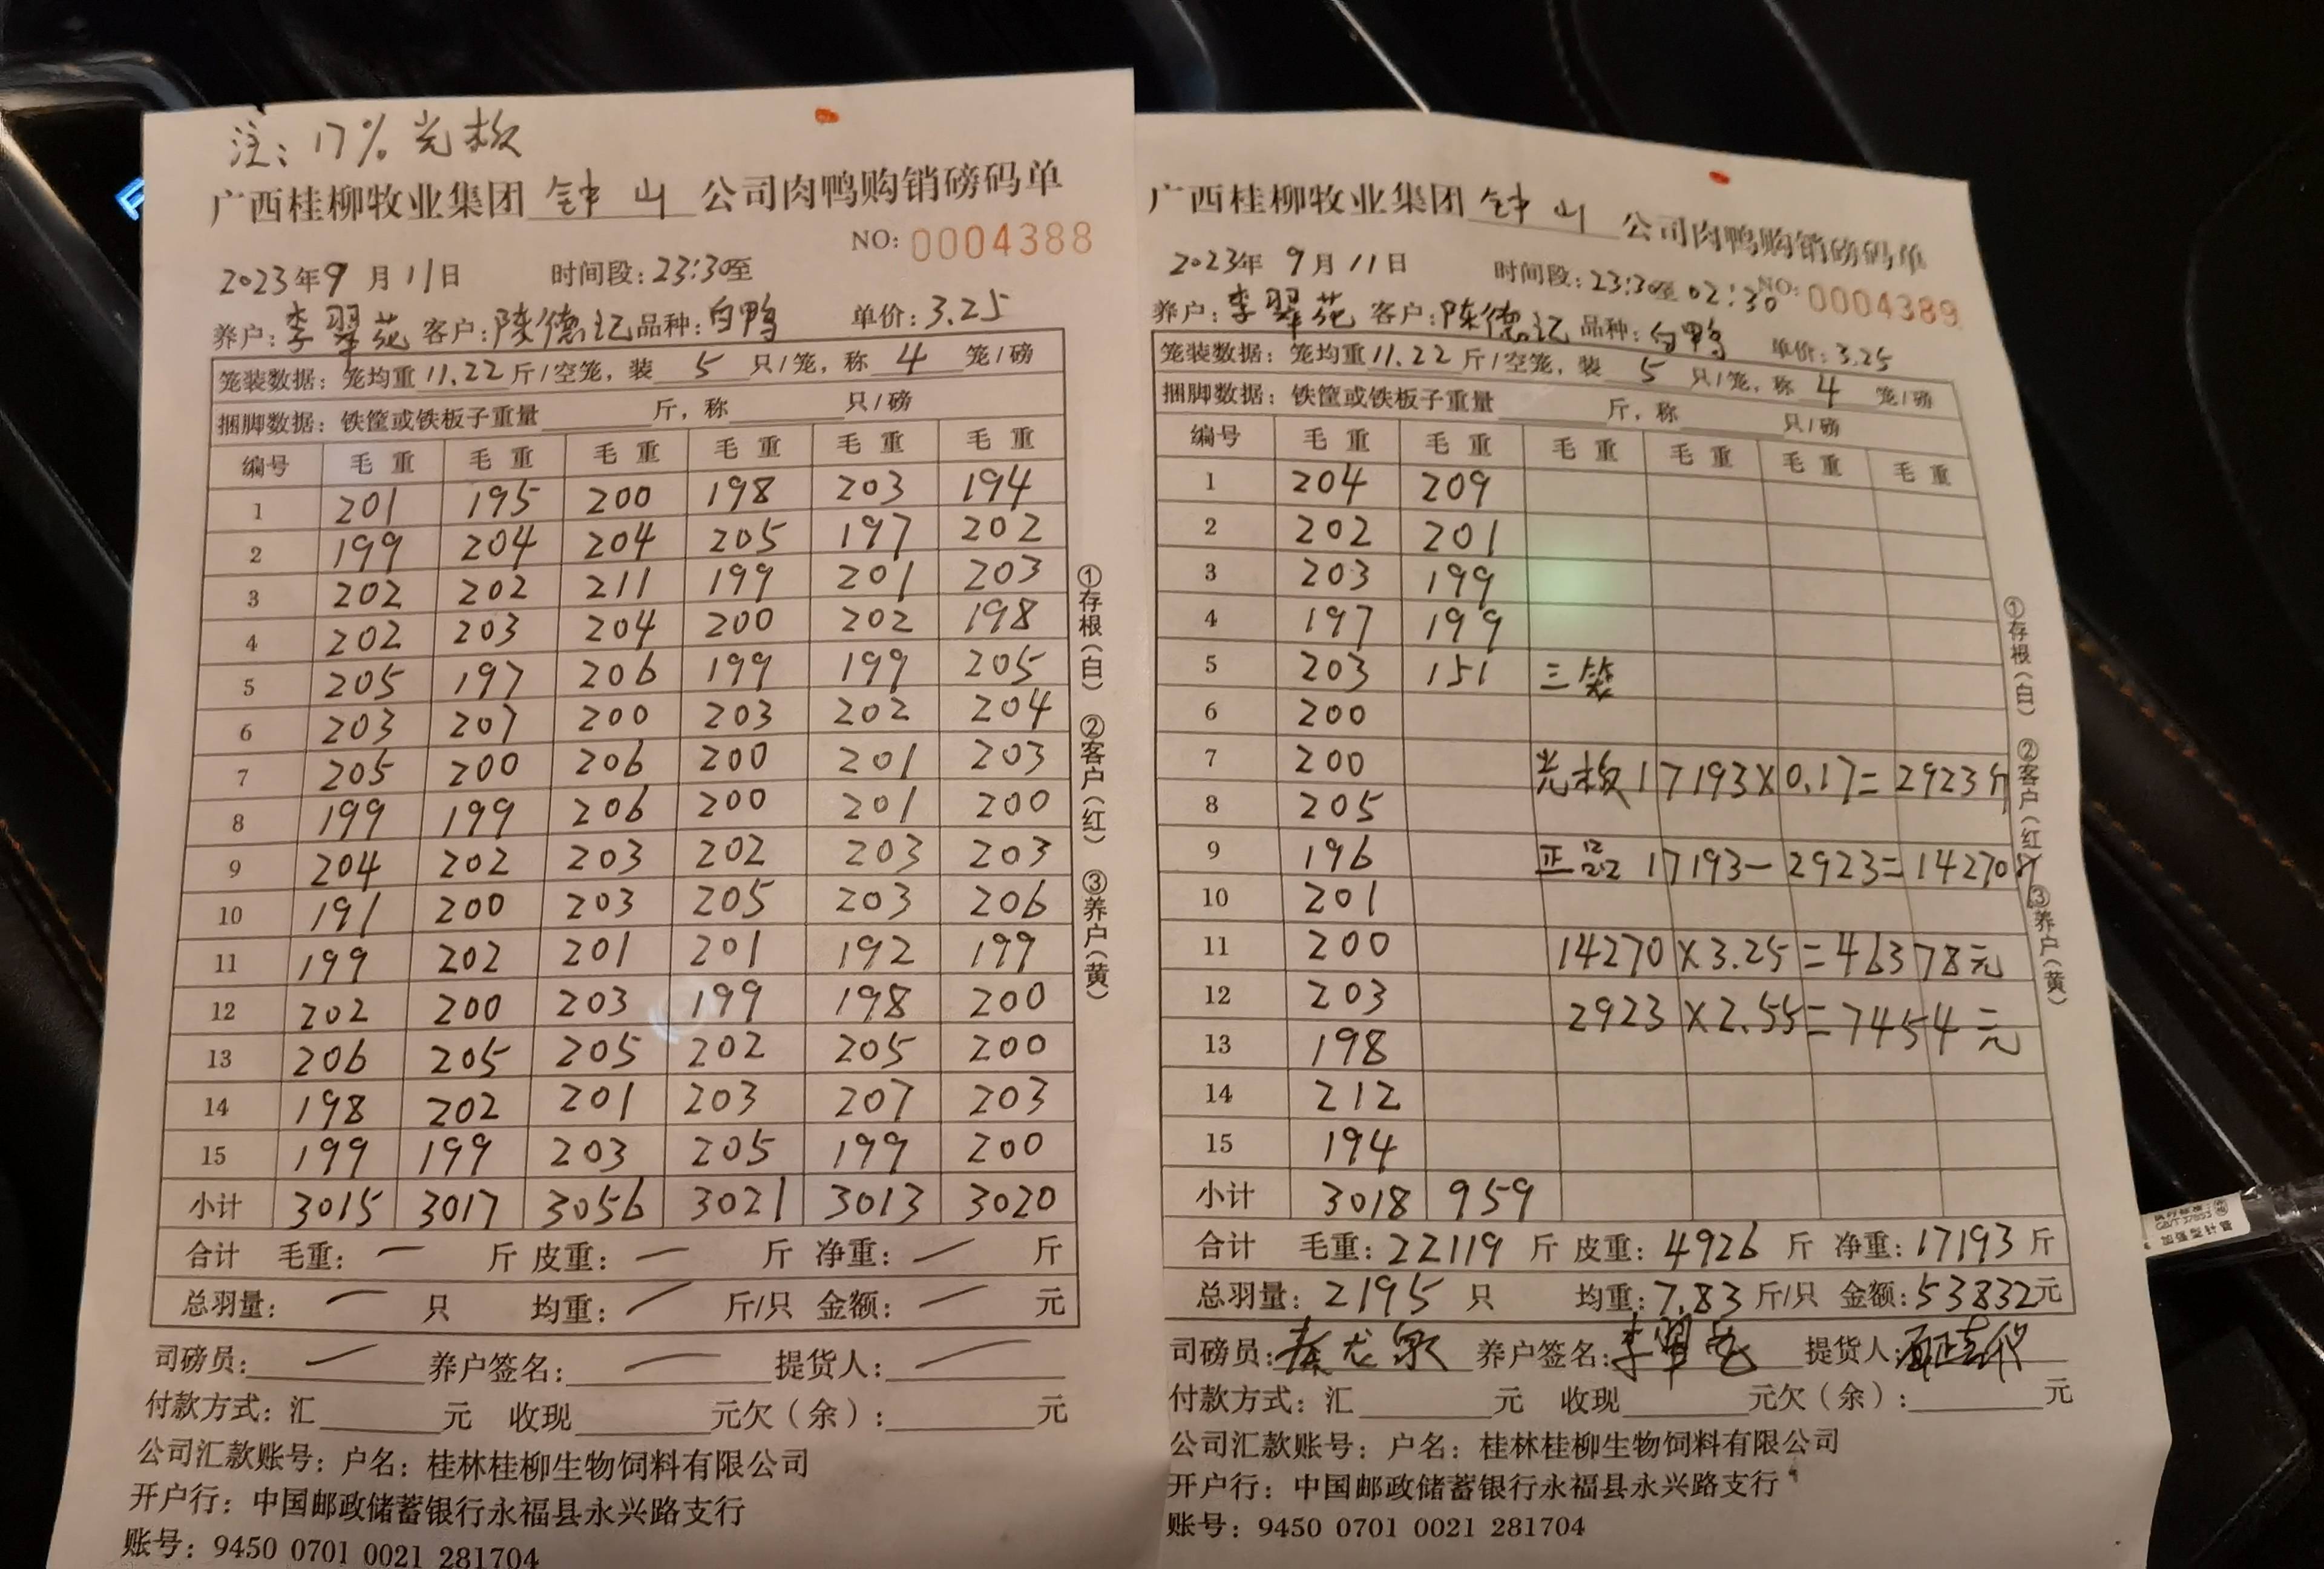 注：17% 光板
广西桂柳牧业集团 钟山 公司肉鸭购销磅码单
NO: 0004388
2023年9月11日 时间段：23:30至
养户：李翠苑 客户：陈德记 品种：白鸭 单价：3.25
笼装数据：笼均重11.22斤/空笼，装 5 只/笼，称 4 笼/磅
捆脚数据：铁筐或铁板子重量 斤，称 只/磅
编号 毛重 毛重 毛重 毛重 毛重 毛重
1 201 195 200 198 203 194
2 199 204 204 205 197 202
3 202 202 211 199 201 203
4 202 203 204 200 202 198
5 205 197 206 199 199 205
6 203 207 200 203 202 204
7 205 200 206 200 201 203
8 199 199 206 200 201 200
9 204 202 203 202 203 203
10 191 200 203 205 203 206
11 199 202 201 201 192 199
12 202 200 203 199 198 200
13 206 205 205 202 205 200
14 198 202 201 203 207 203
15 199 199 203 205 199 200
小计 3015 3017 3056 3021 3013 3020
合计 毛重：一 斤 皮重：一 斤 净重：一 斤
总羽量：一 只 均重：一 斤/只 金额：一 元
司磅员：一 养户签名：一 提货人：一
付款方式：汇 元 收现 元欠（余）： 元
公司汇款账号：户名：桂林桂柳生物饲料有限公司
开户行：中国邮政储蓄银行永福县永兴路支行
账号：9450 0701 0021 281704
①存根（白） ②客户（红） ③养户（黄）
广西桂柳牧业集团 钟山 公司肉鸭购销磅码单
2023年 9月11日 时间段：23:30至02:30 NO: 0004389
养户：李翠苑 客户：陈德记 品种：白鸭 单价：3.25
笼装数据：笼均重11.22斤/空笼，装 5 只/笼，称 4 笼/磅
捆脚数据：铁筐或铁板子重量 斤，称 只/磅
编号 毛重 毛重 毛重 毛重 毛重 毛重
1 204 209
2 202 201
3 203 199
4 197 199
5 203 151 三笼
6 200
7 200 光板17193×0.17=2923斤
8 205
9 196 正品 17193-2923=14270斤
10 201
11 200 14270×3.25=46378元
12 203 2923×2.55=7454元
13 198
14 212
15 194
小计 3018 959
合计 毛重：22119 斤 皮重：4926 斤 净重：17193 斤
总羽量：2195 只 均重：7.83斤/只 金额：53832元
司磅员：秦龙泉 养户签名：李翠苑 提货人：
付款方式：汇 元 收现 元欠（余）： 元
公司汇款账号：户名：桂林桂柳生物饲料有限公司
开户行：中国邮政储蓄银行永福县永兴路支行
账号：9450 0701 0021 281704
①存根（白） ②客户（红） ③养户（黄）